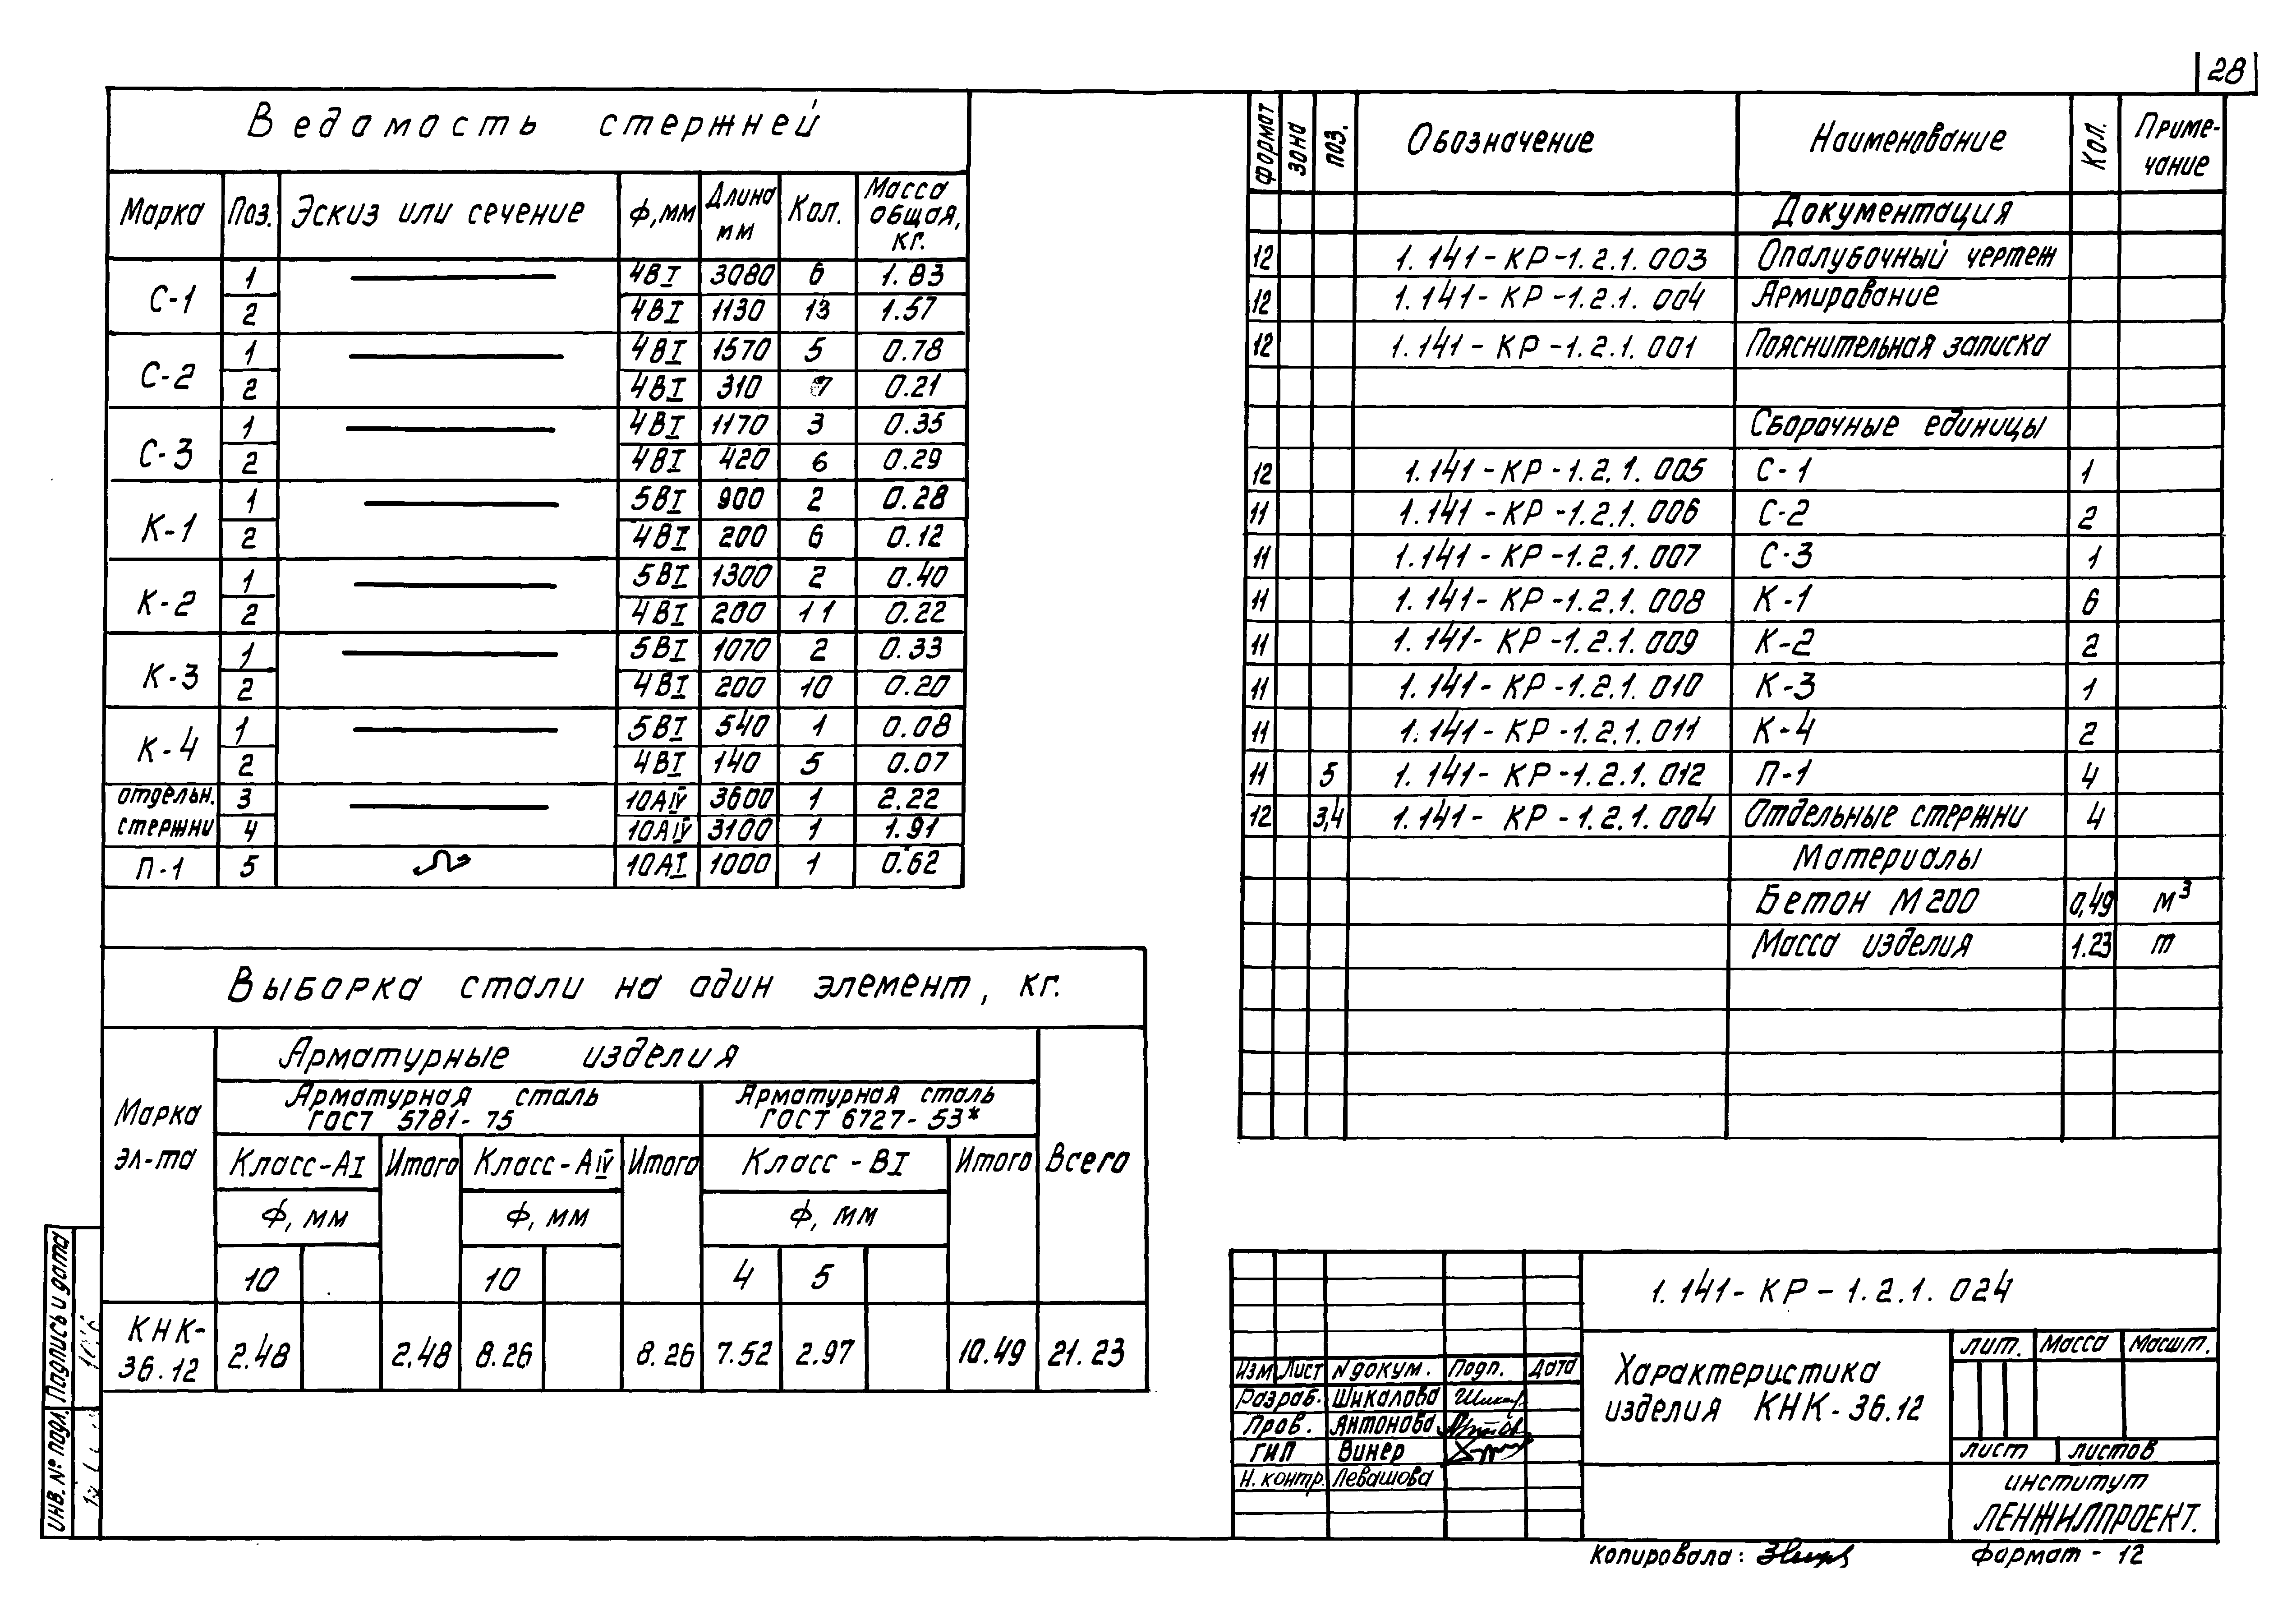 28
Ведамасть стержней
Марка Поз. Эскиз или сечение ф,мм Длина мм Кол. Масса общая, кг.
С-1 1 4ВI 3080 6 1.83
2 4ВI 1130 13 1.57
С-2 1 4ВI 1570 5 0.78
2 4ВI 310 7 0.21
С-3 1 4ВI 1170 3 0.35
2 4ВI 420 6 0.29
К-1 1 5ВI 900 2 0.28
2 4ВI 200 6 0.12
К-2 1 5ВI 1300 2 0.40
2 4ВI 200 11 0.22
К-3 1 5ВI 1070 2 0.33
2 4ВI 200 10 0.20
К-4 1 5ВI 540 1 0.08
2 4ВI 140 5 0.07
отдельн. 3 10АIV 3600 1 2.22
стержни 4 10АIV 3100 1 1.91
П-1 5 10АI 1000 1 0.62
Выборка стали на один элемент, кг.
Марка эл-та
Арматурные изделия
Арматурная сталь ГОСТ 5781-75
Арматурная сталь ГОСТ 6727-53*
Класс-АI Итого Класс-АIV Итого Класс-ВI Итого Всего
Ф, мм Ф, мм Ф, мм
10 10 4 5
КНК-36.12 2.48 2.48 8.26 8.26 7.52 2.97 10.49 21.23
формат зона поз. Обозначение Наименование Кол. Приме-чание
Документация
12 1.141-КР-1.2.1.003 Опалубочный чертеж
12 1.141-КР-1.2.1.004 Армирование
12 1.141-КР-1.2.1.001 Пояснительная записка
Сборочные единицы
12 1.141-КР-1.2.1.005 С-1 1
11 1.141-КР-1.2.1.006 С-2 2
11 1.141-КР-1.2.1.007 С-3 1
11 1.141-КР-1.2.1.008 К-1 6
11 1.141-КР-1.2.1.009 К-2 2
11 1.141-КР-1.2.1.010 К-3 1
11 1.141-КР-1.2.1.011 К-4 2
11 5 1.141-КР-1.2.1.012 П-1 4
12 3,4 1.141-КР-1.2.1.004 Отдельные стержни 4
Материалы
Бетон М200 0,49 м³
Масса изделия 1.23 т
1.141-КР-1.2.1.024
Изм Лист N докум. Подп. Дата
Разраб. Шикалова
Пров. Антонова
ГИП Винер
Н. контр. Левашова
Характеристика
изделия КНК-36.12
лит. Масса Масшт.
лист листов
институт
ЛЕНЖИЛПРОЕКТ.
Копировала:
Формат - 12
Инв. № подл. Подпись и дата